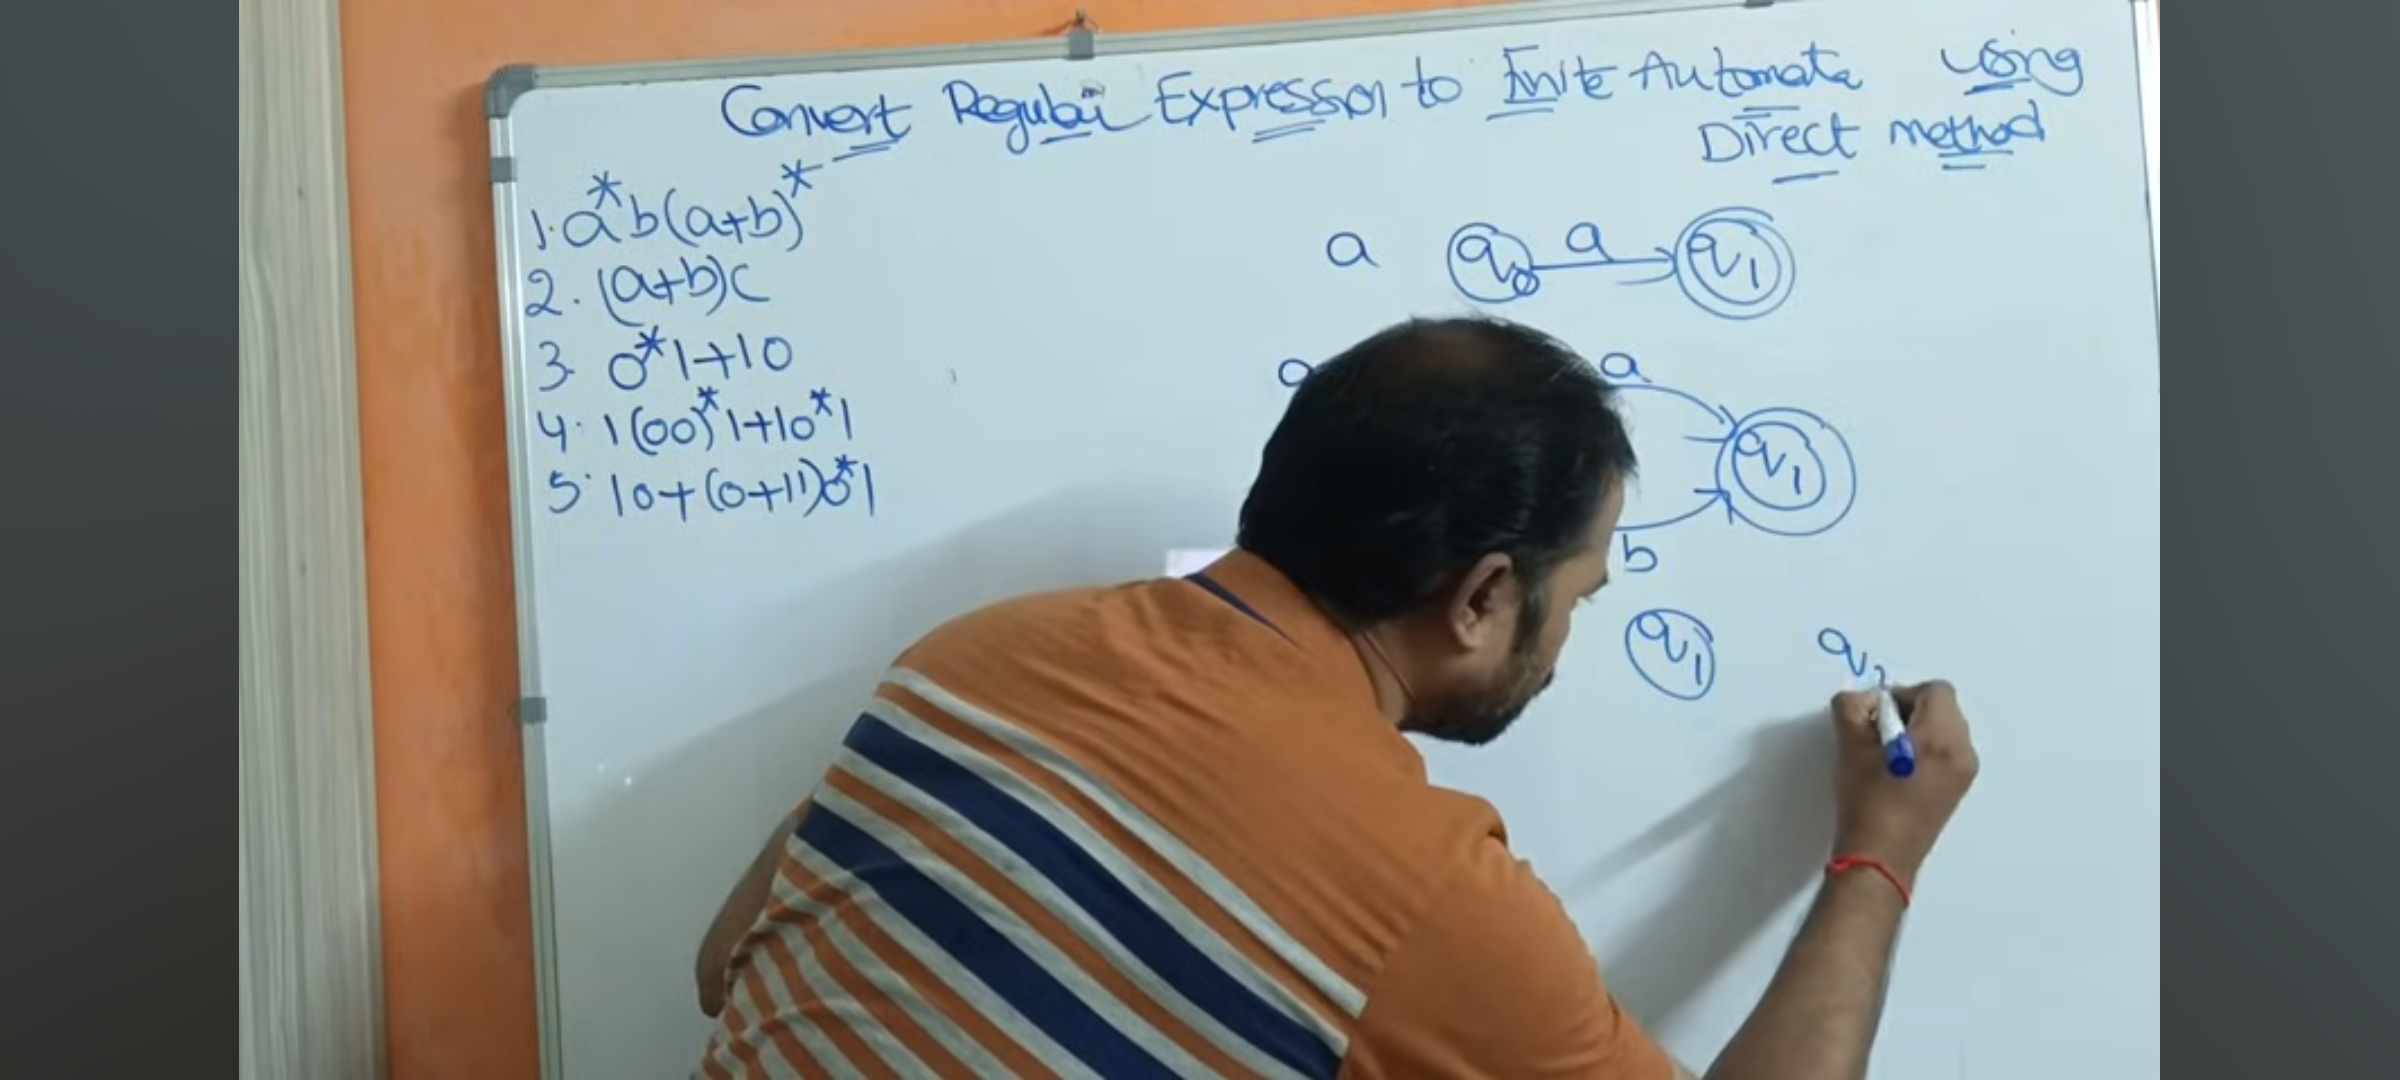 Convert Regular Expression to Finite Automata using
Direct method
1. a*b(a+b)*
2. (a+b)c
3. 0*1+10
4. 1(00)*1+10*1
5. 10+(0+11)0*1
a q0 a q1
a a
q1
b
q1 q2